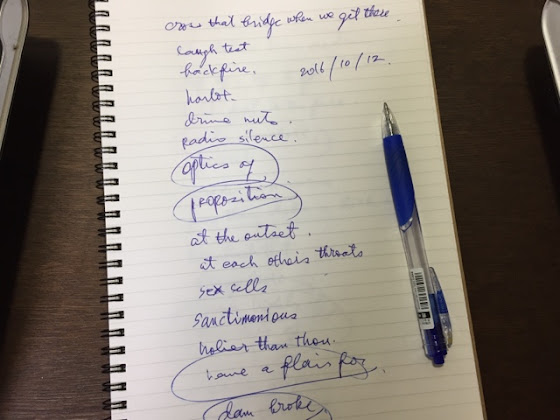 cross that bridge when we get there.
laugh test
backfire. 2016/10/12.
harlot.
drive nuts.
radio silence.
optics of
proposition
at the outset.
at each others throats
sex sells
sanctimonious
holier than thou.
have a flair for
dam broke